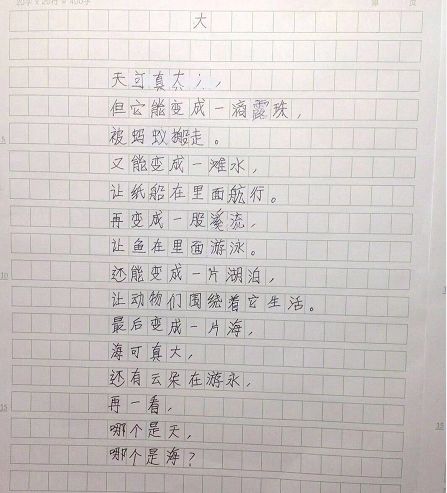 20字×20行=400字
第 页
大
天可真大，
但它能变成一滴露珠，
被蚂蚁搬走。
又能变成一滩水，
让纸船在里面航行。
再变成一股溪流，
让鱼在里面游泳。
还能变成一片湖泊，
让动物们围绕着它生活。
最后变成一片海，
海可真大，
还有云朵在游永，
再一看，
哪个是天，
哪个是海？
5
10
15